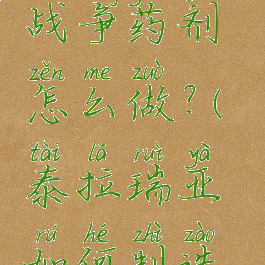 战争药剂
zěn me zuò
怎么做?(
tài lá ruì yà
泰拉瑞亚
rú hé zhì zào
如何制造